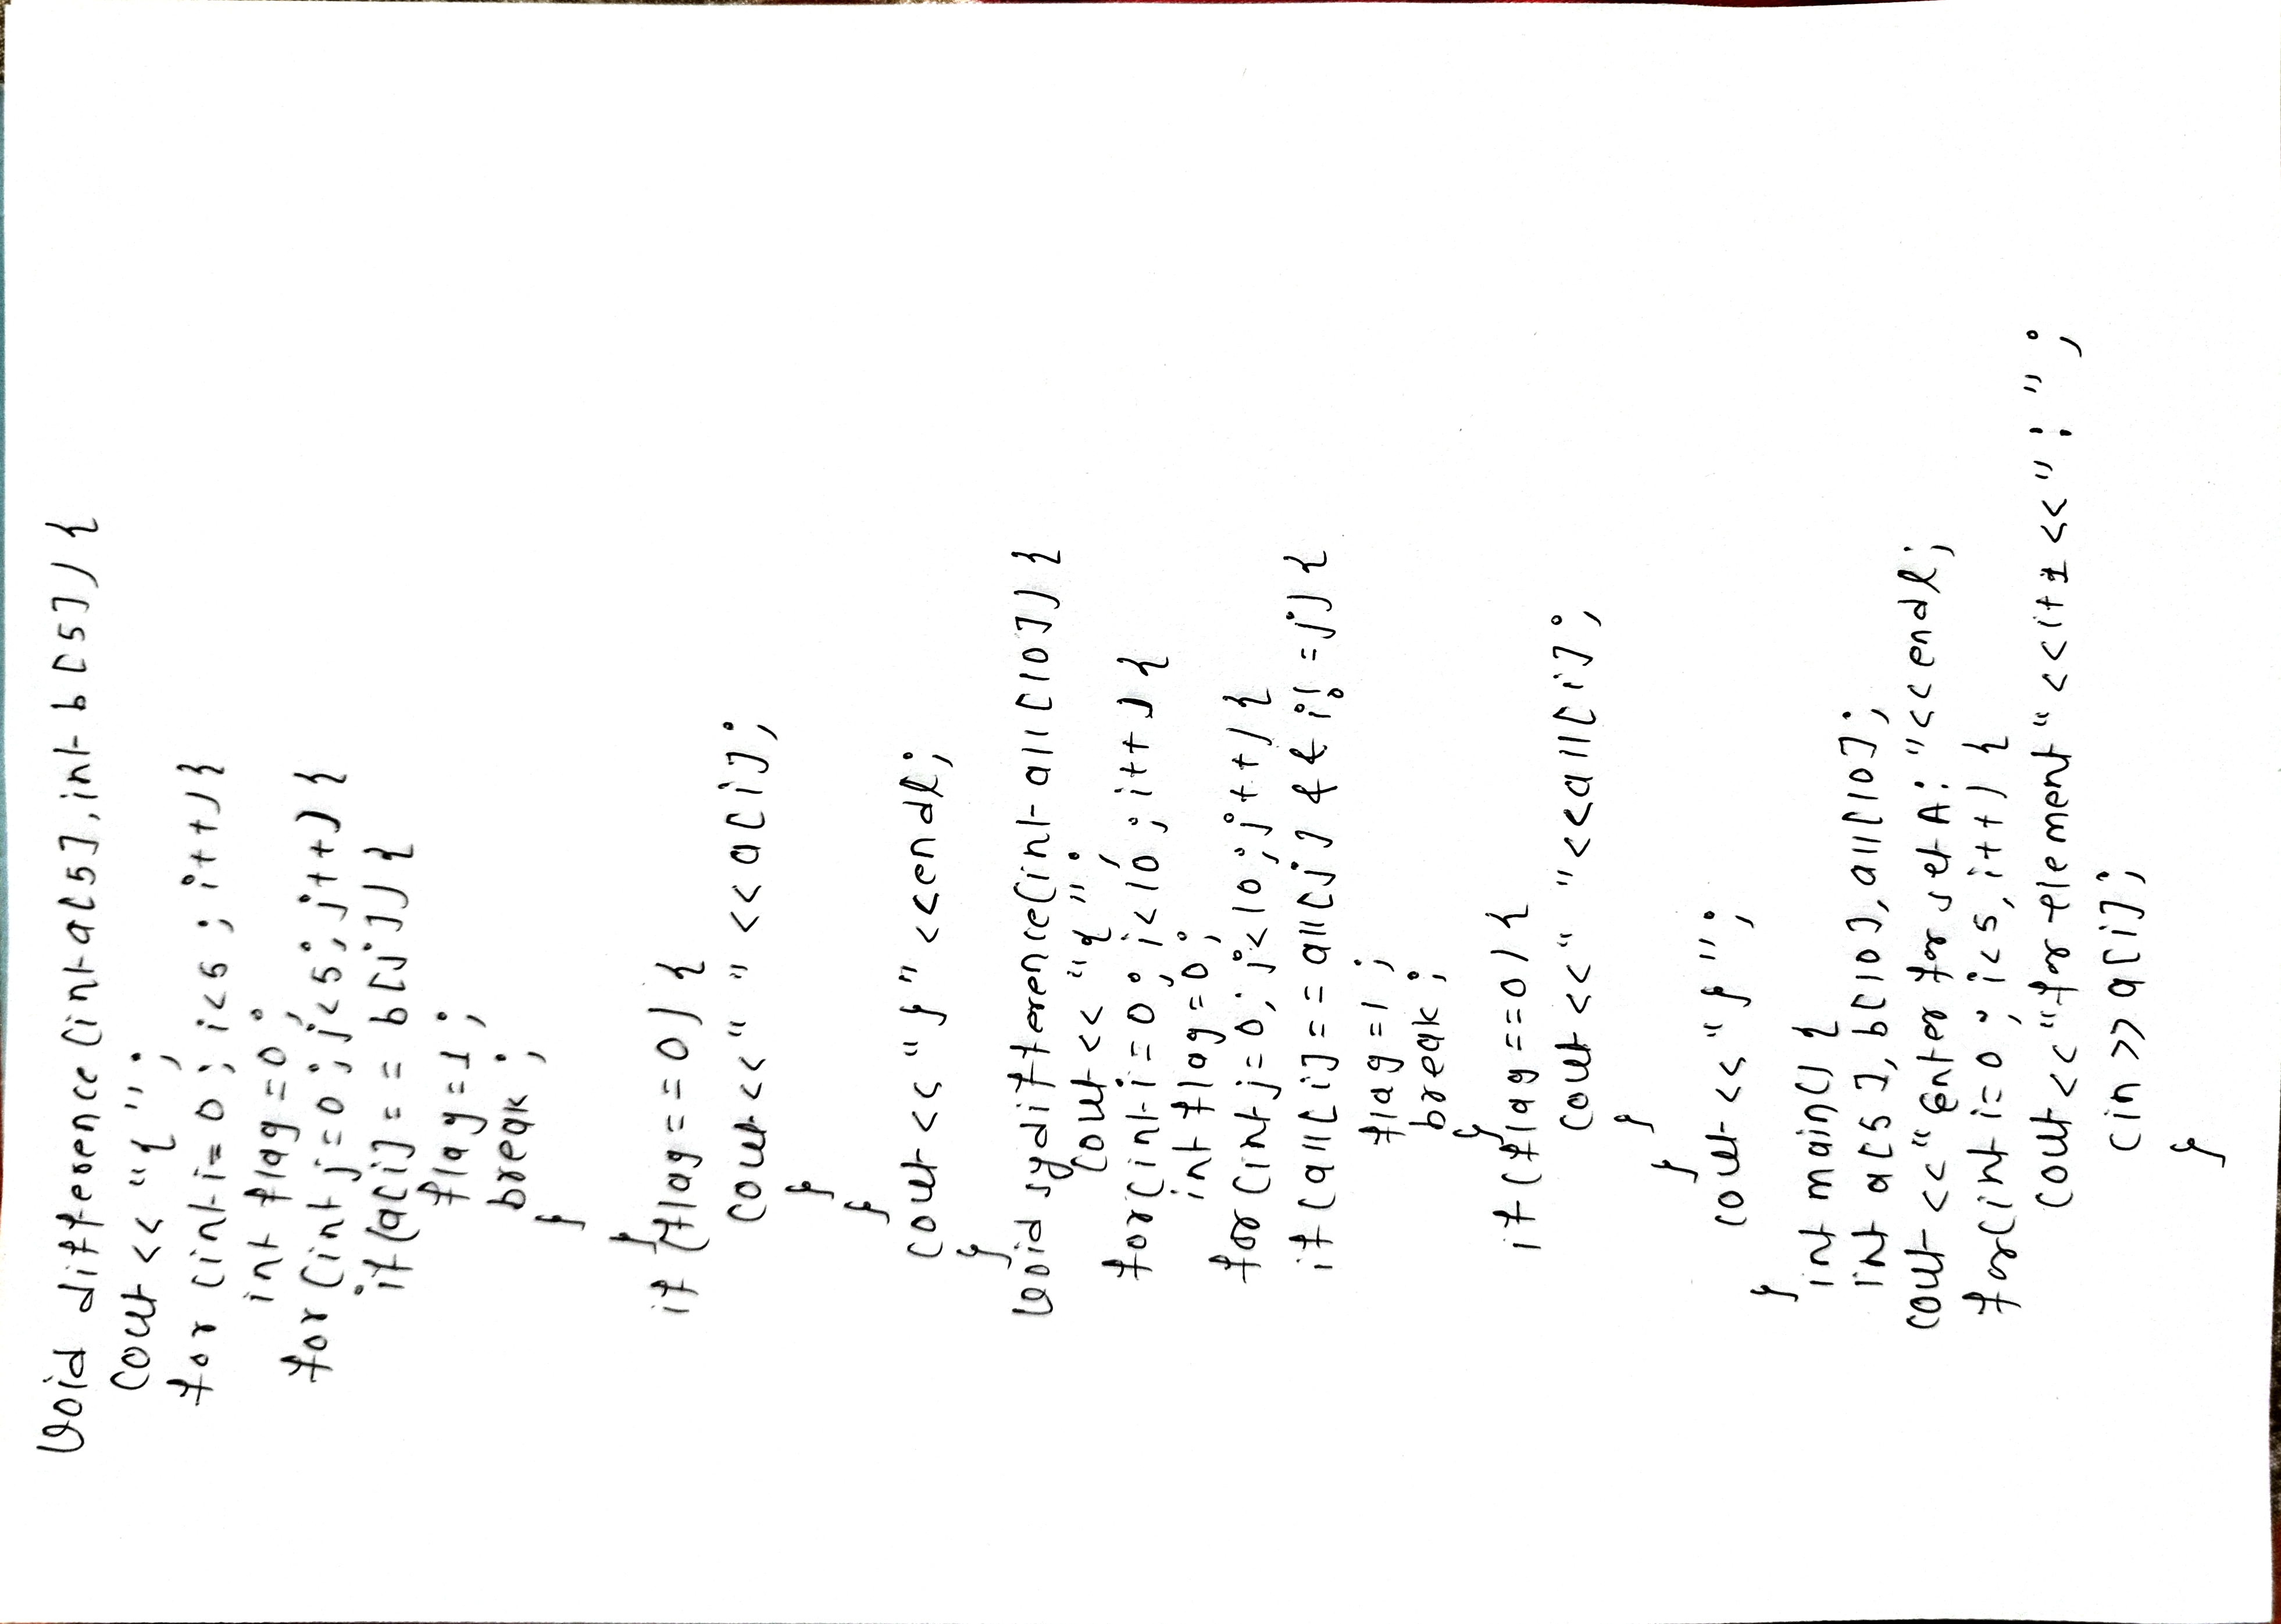 void difference(int a[5], int b[5]) {
cout << "{ ";
for (int i=0; i<5 ; i++) {
int flag =0;
for (int j=0; j<5; j++) {
if (a[i] == b[j]) {
flag=1;
break;
}
}
if (flag==0) {
cout<<" " <<a[i];
}
}
cout << "}" <<endl;
}
void sydifference(int all[10]) {
cout<< "{ ";
for(int i=0; i<10 ; i++) {
int flag=0;
for (int j=0; j<10; j++) {
if (all[i]== all[j] && i!=j) {
flag=1;
break;
}
if (flag==0) {
cout <<" "<<all[i];
}
}
cout << "}";
}
int main() {
int a[5], b[10], all[10];
cout << "Enter for set A: "<<endl;
for(int i=0; i<5, i++) {
cout<<"for element"<<i+1<<" : ";
cin>>a[i];
}